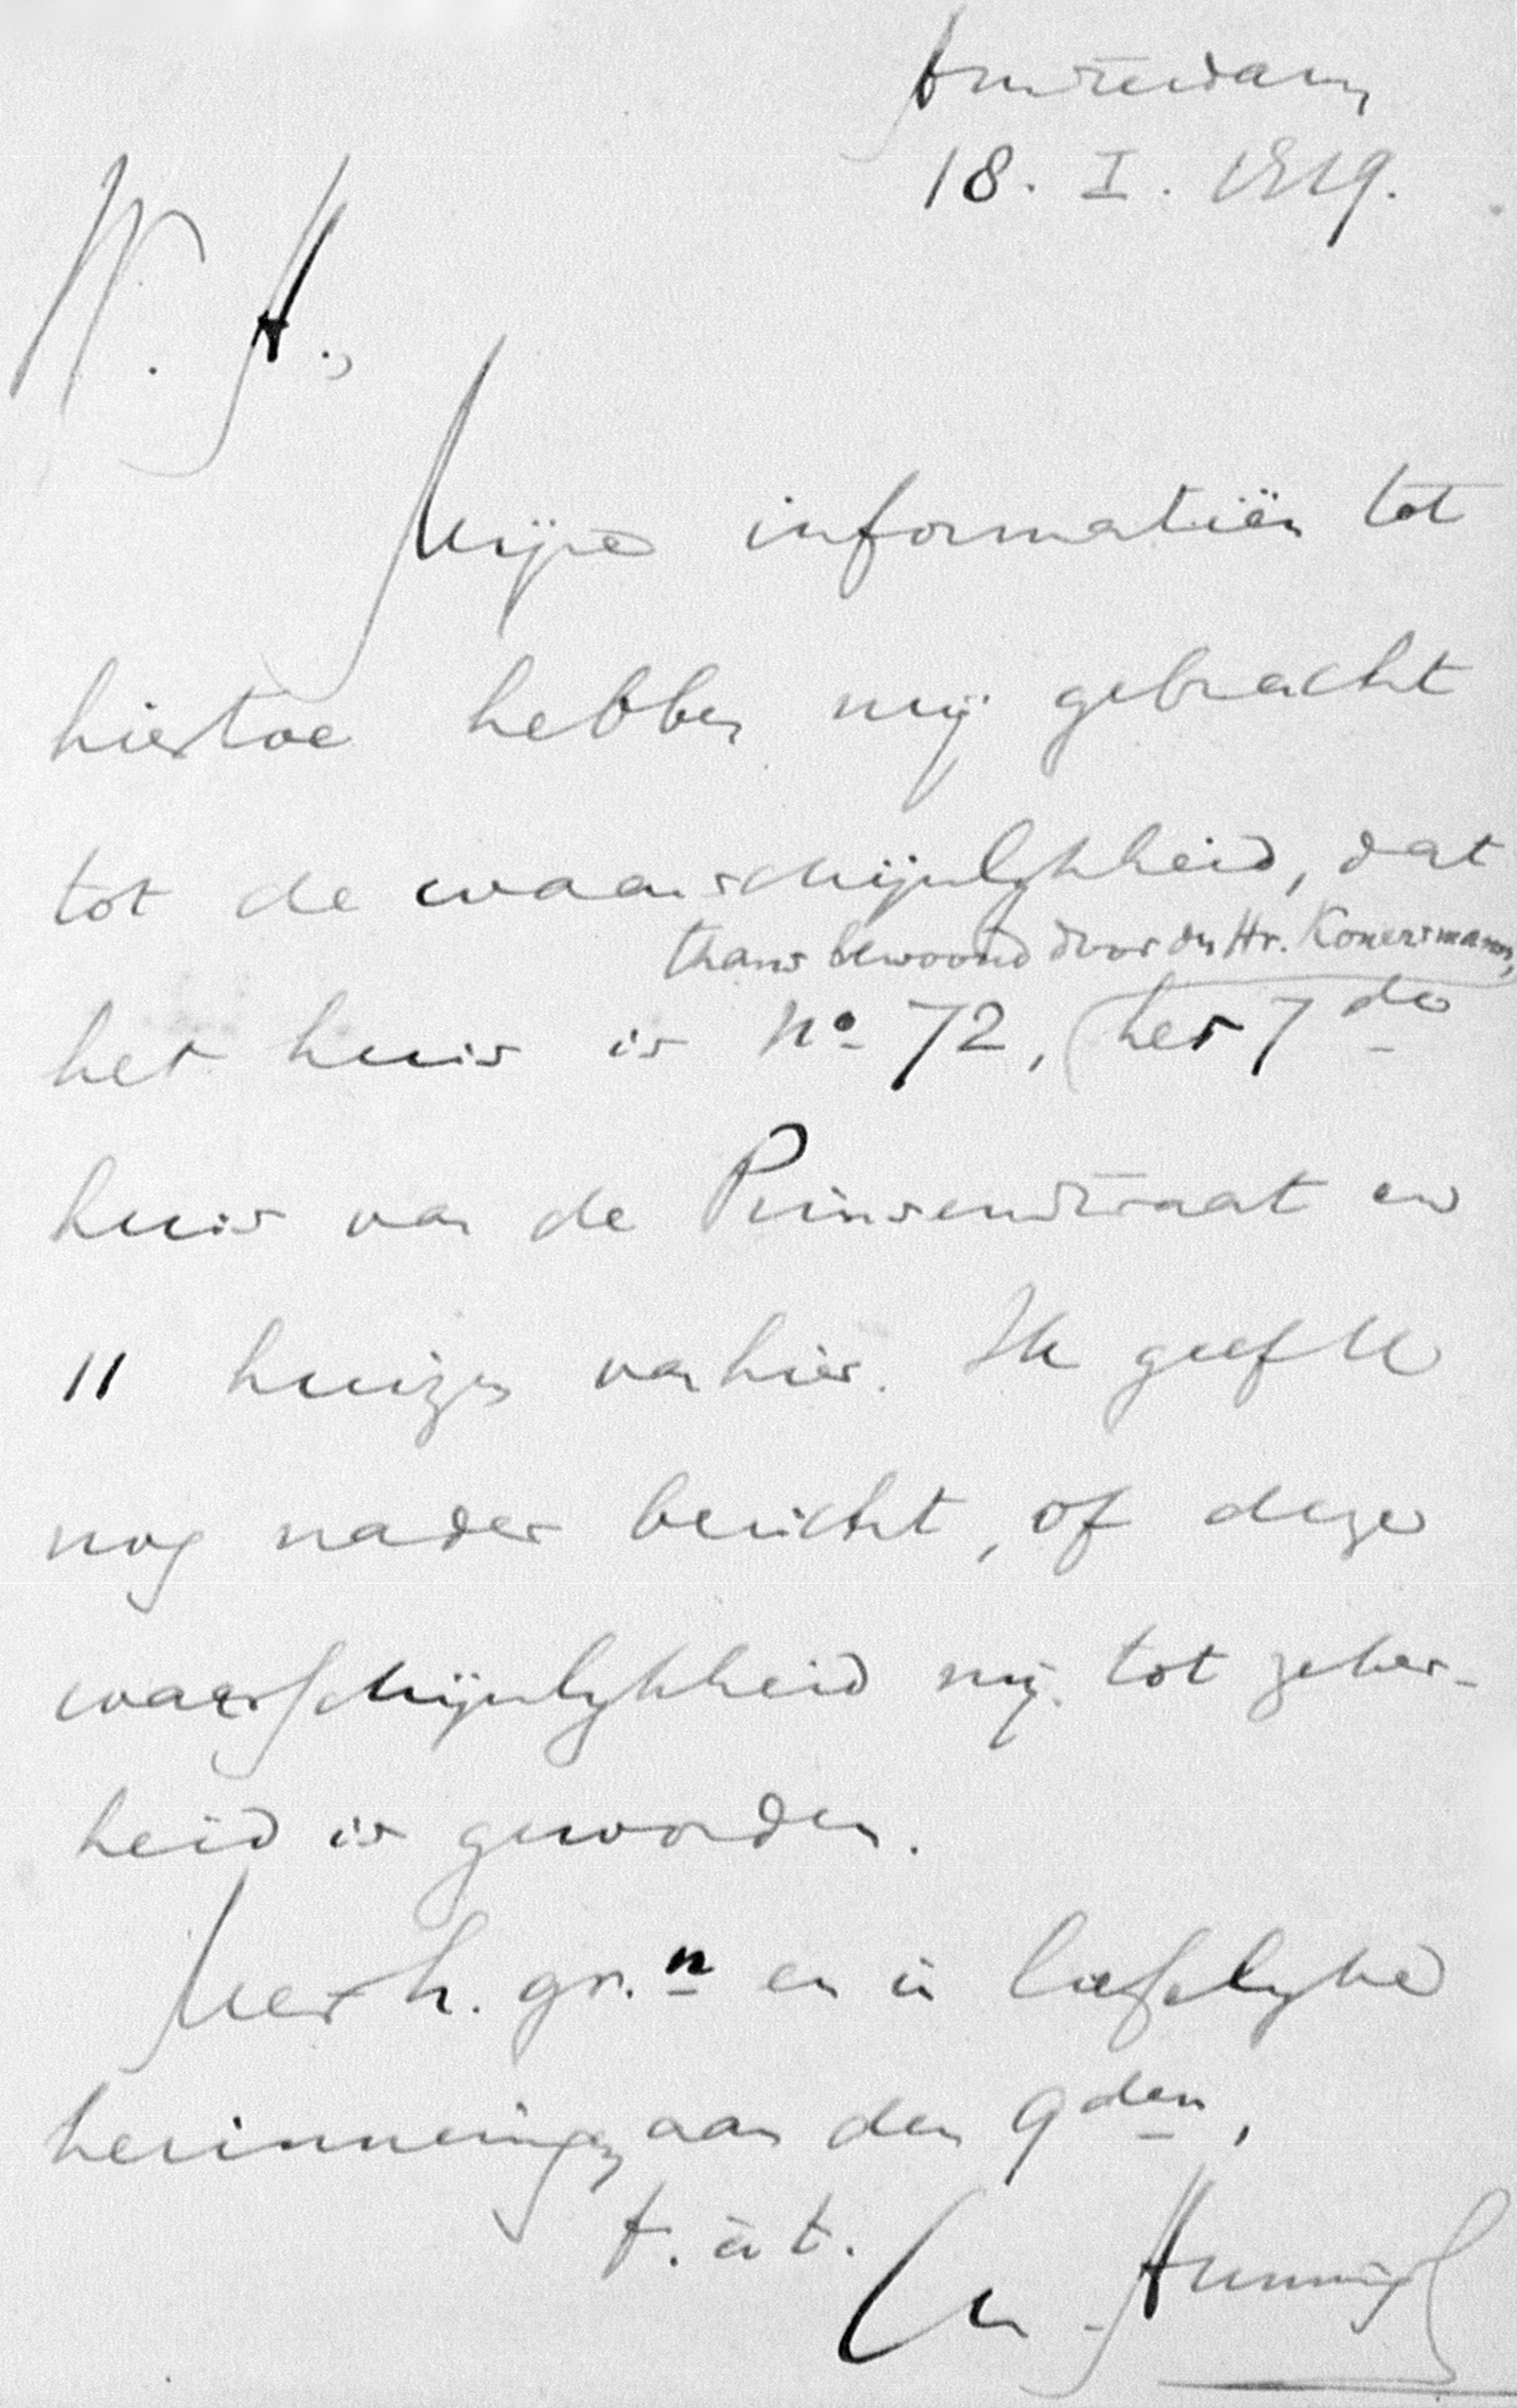 Amsterdam
18. I. 1919.
W. H.,
Mijne informatiën tot
hiertoe hebben mij gebracht
tot de waarschijnlijkheid, dat
thans bewoond door den Hr. Konersmann,
het huis is No 72, (het 7de
huis van de Prinsenstraat en
11 huizen van hier. Ik geef U
nog nader bericht, of deze
waarschijnlijkheid mij tot zeker-
heid is geworden.
Met h. gr.n en in liefelijke
herinnering aan den 9den,
t. à t.